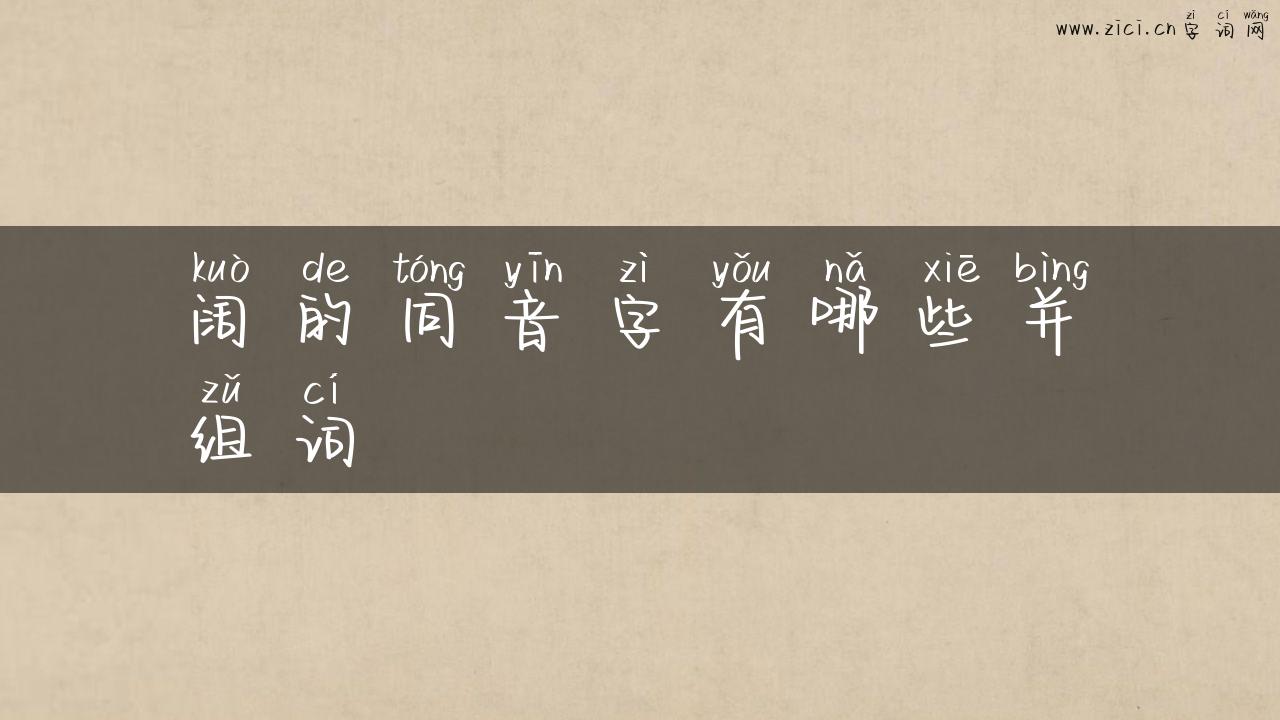 zì cí wǎng
www.zici.cn 字词网
kuò de tóng yīn zì yǒu nǎ xiē bìng
阔的同音字有哪些并
zǔ cí
组词